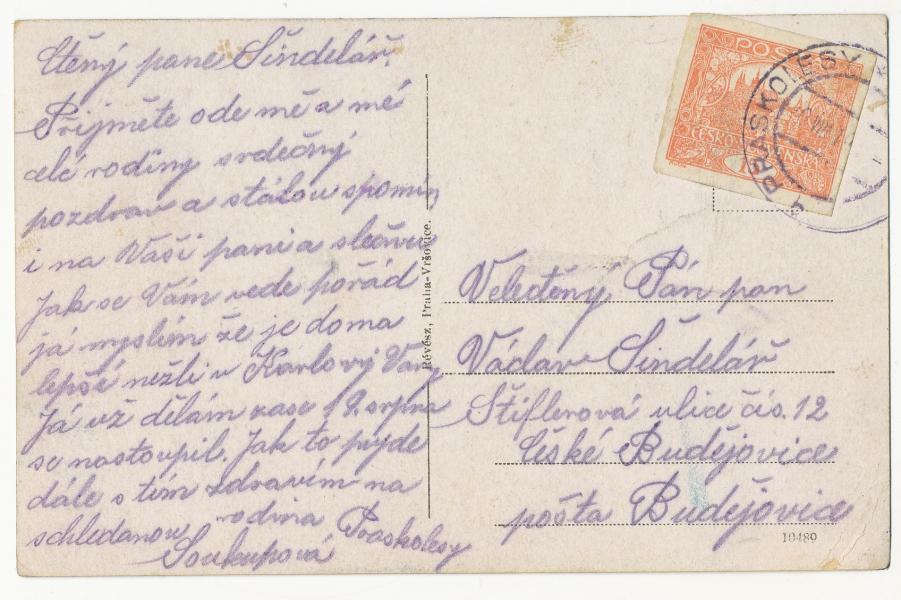 Ctěný pane Šindelář.
Přijměte ode mě a mé
celé rodiny srdečný
pozdrav a stálou spomín
i na Vaši pani a slečnu
Jak se Vám vede pořád
já myslím že je doma
lepší nežli v Karlový Vary
Já už dělám zase 18. srpna
se nastoupil. Jak to pujde
dále s tím zdravím na
schledanou rodina Praskolesy
Soukupová
Révész, Praha-Vršovice.
POŠTA
ČESKOSLOVENSKÁ
PRASKOLESY
Velectěný Pán pan
Václav Šindelář
Štiflerová ulice čis. 12
České Budějovice
pošta Budějovice
10489